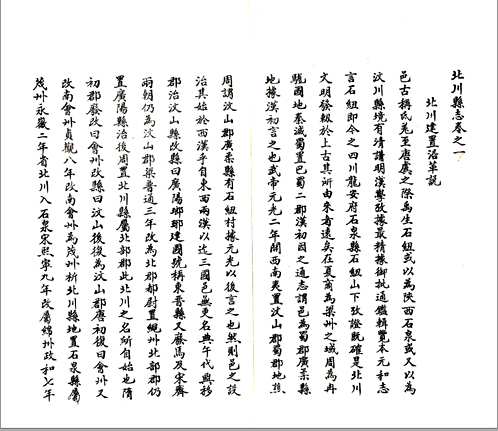 北川縣志卷之一
北川建置沿革說
邑古稱氐羌至唐虞之際禹生石紐或以為陝西石泉或又以為
汶川縣境有清講明漢學攷據最精據御批通鑑輯覽本元和志
言石紐即今之四川龍安府石泉縣石紐山下攷證既確是北川
文明發軔於上古其所由來者遠矣在夏商為梁州之域周為冉
駹國地秦滅蜀置巴蜀二郡漢初因之通志謂邑為蜀郡廣柔縣
地據漢初言之也武帝元光二年開西南夷置汶山郡蜀郡地焦
周謂汶山郡廣柔縣有石紐村據元光以後言之也然則邑之設
治其始於西漢乎自東西兩漢以迄三國邑無更名典午代興移
郡治汶山縣改縣曰廣陽瑯琊建國號稱東晉縣又廢馬及宋齊
兩朝仍為汶山郡梁普通三年改為北郡都尉置繩州北部郡仍
置廣陽縣治後周置北川縣屬北部郡此北川之名所自始也隋
初郡廢改曰會州改縣曰汶山後復為汶山郡唐初復曰會州又
改南會州貞觀八年改南會州為茂州析北川縣地置石泉縣屬
茂州永徽二年省北川入石泉宋熙寧九年改屬綿州政和七年